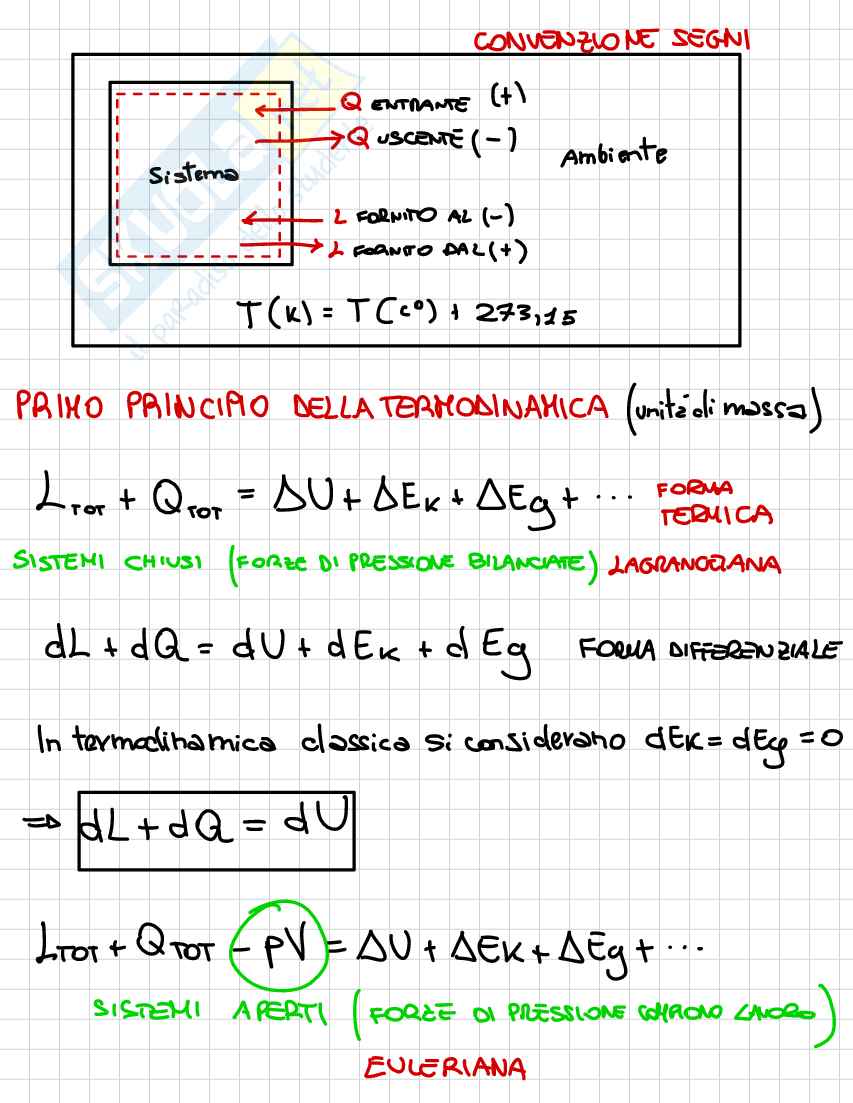 CONVENZIONE SEGNI
Q ENTRANTE (+)
Q USCENTE (-)
Sistema
Ambiente
L FORNITO AL (-)
L FORNITO DAL (+)
T(K) = T(C°) + 273,15
PRIMO PRINCIPIO DELLA TERMODINAMICA (unità di massa)
L_TOT + Q_TOT = ΔU + ΔEK + ΔEg + ... FORMA TERMICA
SISTEMI CHIUSI (FORZE DI PRESSIONE BILANCIATE) LAGRANGIANA
dL + dQ = dU + dEK + dEg FORMA DIFFERENZIALE
In termodinamica classica si considerano dEK = dEg = 0
⇒ dL + dQ = dU
L_TOT + Q_TOT - pV = ΔU + ΔEK + ΔEg + ...
SISTEMI APERTI (FORZE DI PRESSIONE COMPIONO LAVORO)
EULERIANA
SKUOLA.net
il paradiso dello studente